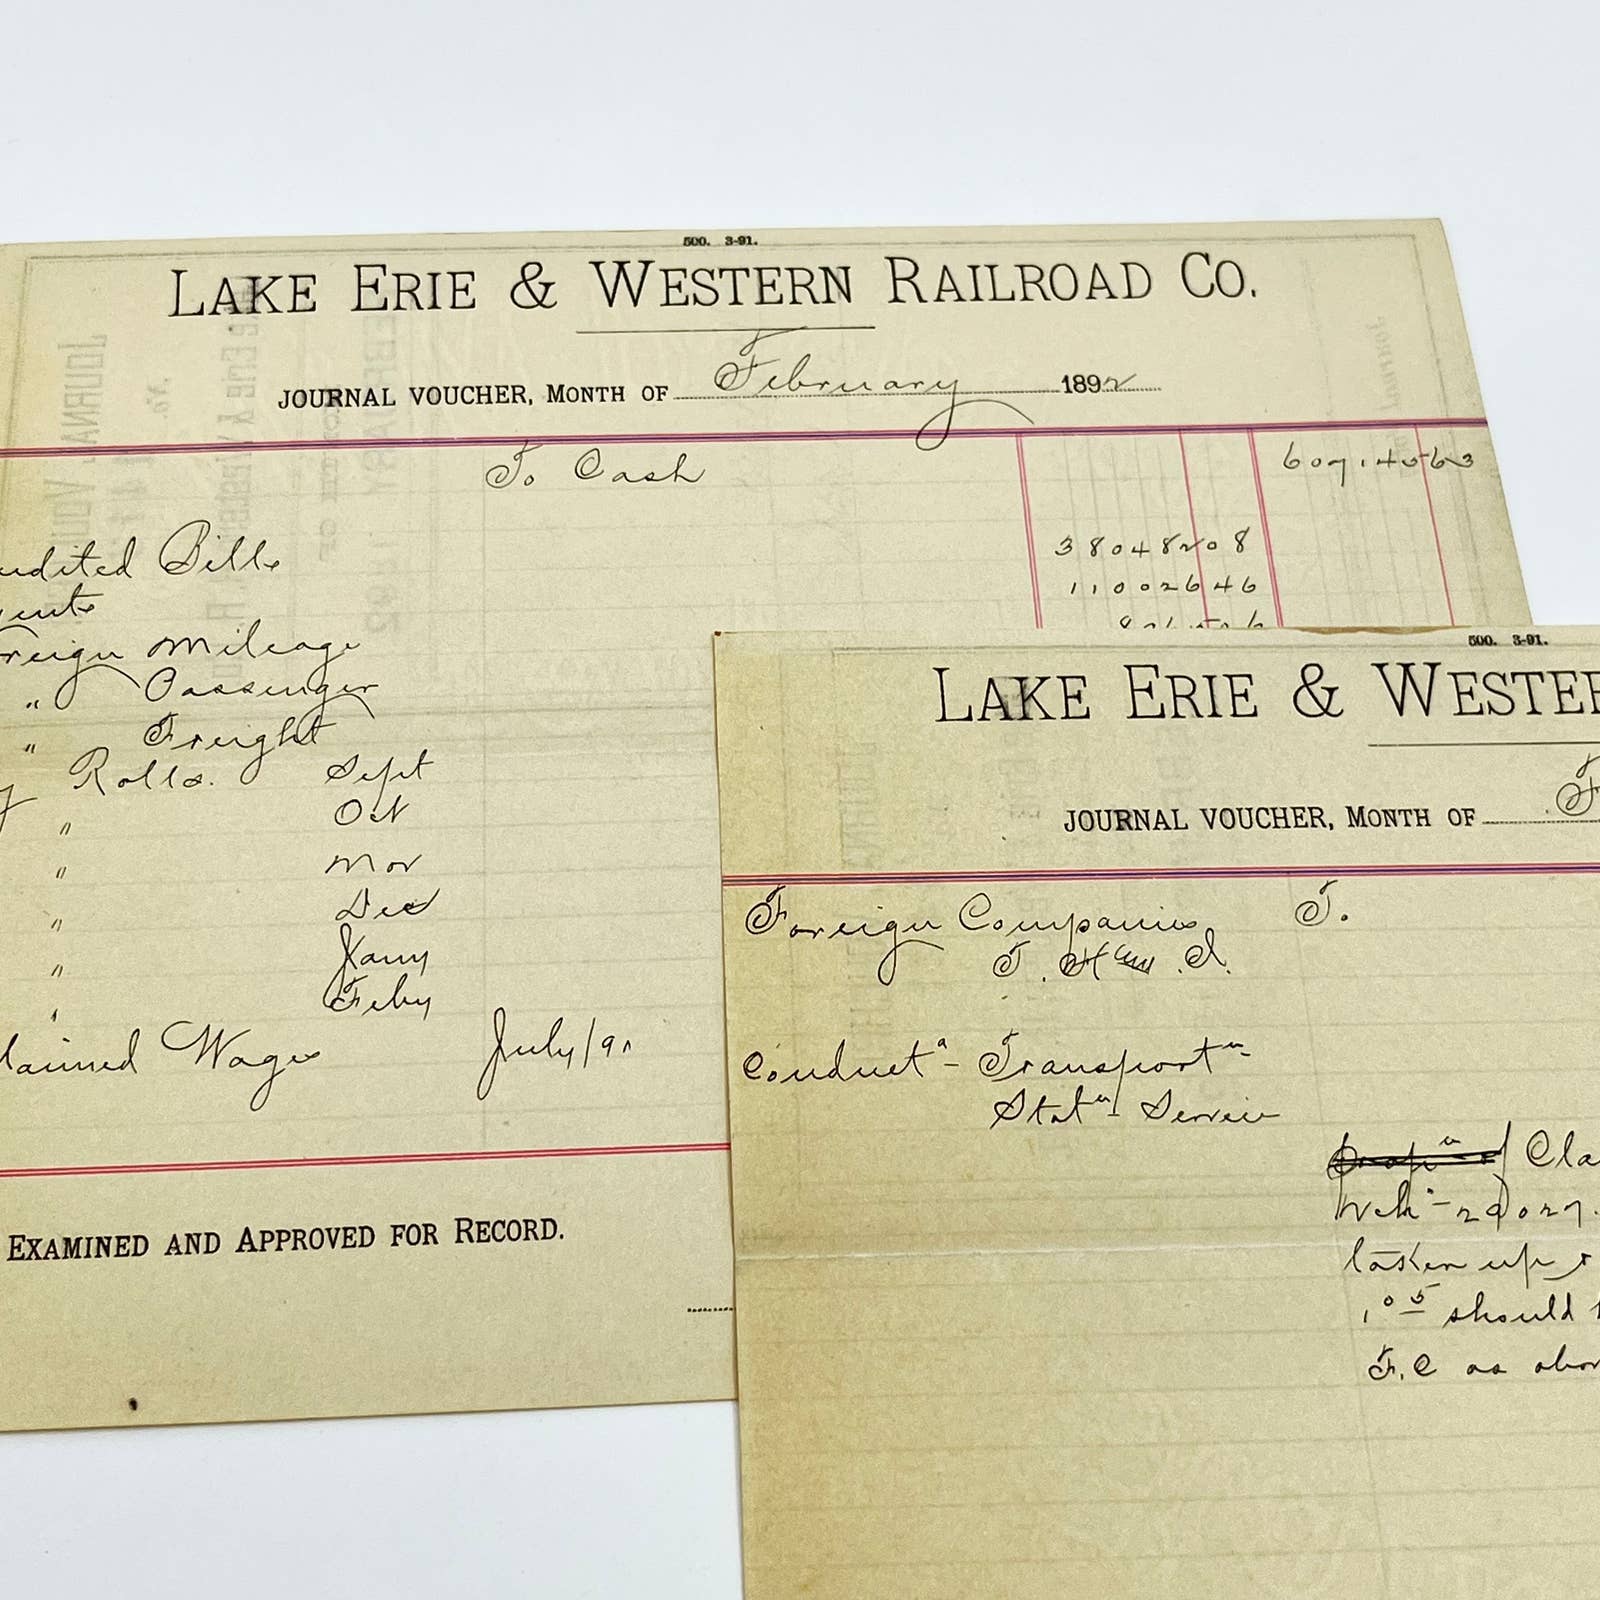 500. 3-91.
LAKE ERIE & WESTERN RAILROAD CO.
JOURNAL VOUCHER, MONTH OF February 1892
To Cash
38048208
11002646
udited Bills
gents
reign Mileage
" Passenger
" Freight
y Rolls. Sept
" Oct
" Nov
" Dec
" Jany
" Feby
laimed Wages July/91
EXAMINED AND APPROVED FOR RECORD.
500. 3-91.
LAKE ERIE & WESTER
JOURNAL VOUCHER, MONTH OF F
Foreign Companies T.
Conductⁿ - Transportⁿ-
Statⁿ Service
Cla
taken up
should
F.C as abov